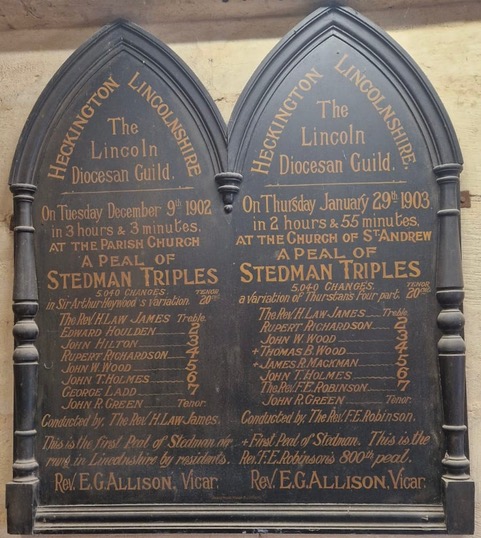 HECKINGTON LINCOLNSHIRE
The
Lincoln
Diocesan Guild.
On Tuesday December 9th 1902
in 3 hours & 3 minutes,
AT THE PARISH CHURCH
A PEAL OF
STEDMAN TRIPLES
5,040 CHANGES, TENOR
in Sir Arthur Heywood's variation. 20cwt
The Rev. H. LAW JAMES Treble.
EDWARD HOULDEN 2
JOHN HILTON 3
RUPERT RICHARDSON 4
JOHN W. WOOD 5
JOHN T. HOLMES 6
GEORGE LADD 7
JOHN R. GREEN Tenor.
Conducted by, The Rev. H. LAW JAMES.
This is the first Peal of Stedman ever
rung in Lincolnshire by residents.
Rev. E. G. ALLISON, Vicar.
HECKINGTON LINCOLNSHIRE.
The
Lincoln
Diocesan Guild.
On Thursday January 29th 1903,
in 2 hours & 55 minutes,
AT THE CHURCH OF ST ANDREW
A PEAL OF
STEDMAN TRIPLES
5,040 CHANGES, TENOR
a variation of Thurstans Four part. 20cwt
The Rev. H. LAW JAMES Treble.
RUPERT RICHARDSON 2
JOHN W. WOOD 3
+THOMAS B. WOOD 4
+JAMES R. MACKMAN 5
JOHN T. HOLMES 6
The Rev. F.E. ROBINSON 7
JOHN R. GREEN Tenor.
Conducted by, The Rev. F.E. ROBINSON.
+First Peal of Stedman. This is the
Rev. F.E. Robinson's 800th peal.
Rev. E. G. ALLISON, Vicar.